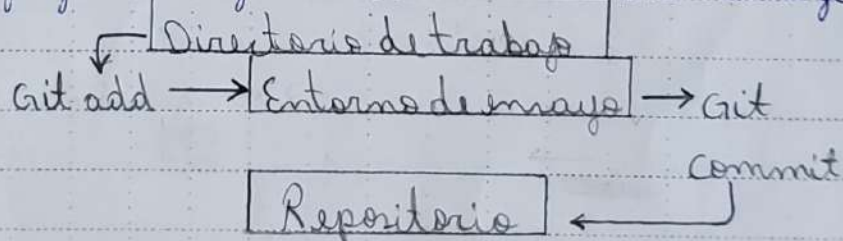 Directorio de trabajo
Git add → Entorno de ensayo → Git
commit
Repositorio